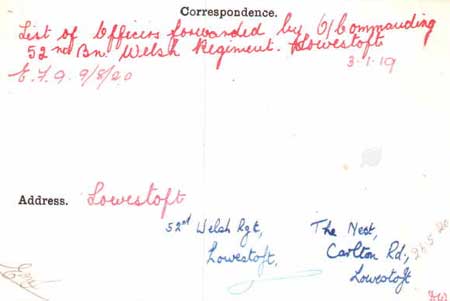 Correspondence.
List of Officers forwarded by O/Commanding
52nd Bn. Welsh Regiment. Lowestoft
3-1-19
E.F.G. 9/8/20
Address. Lowestoft
52nd Welsh Rgt,
Lowestoft.
The Nest,
Carlton Rd.,
Lowestoft
26.5.20